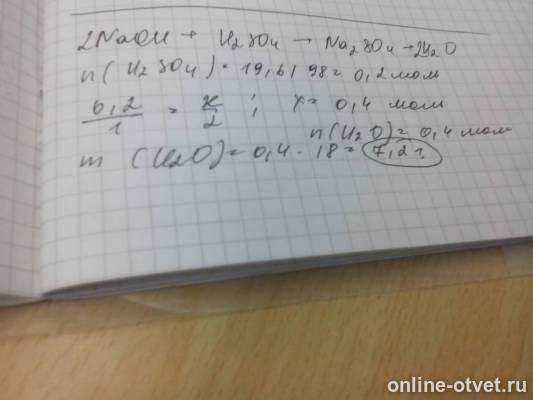 2NaOH + H2SO4 → Na2SO4 + 2H2O
n(H2SO4) = 19,6/98 = 0,2 моль
0,2/1 = x/2 ; x = 0,4 моль
n(H2O) = 0,4 моль
m (H2O) = 0,4 · 18 = 7,2 г.
online-otvet.ru